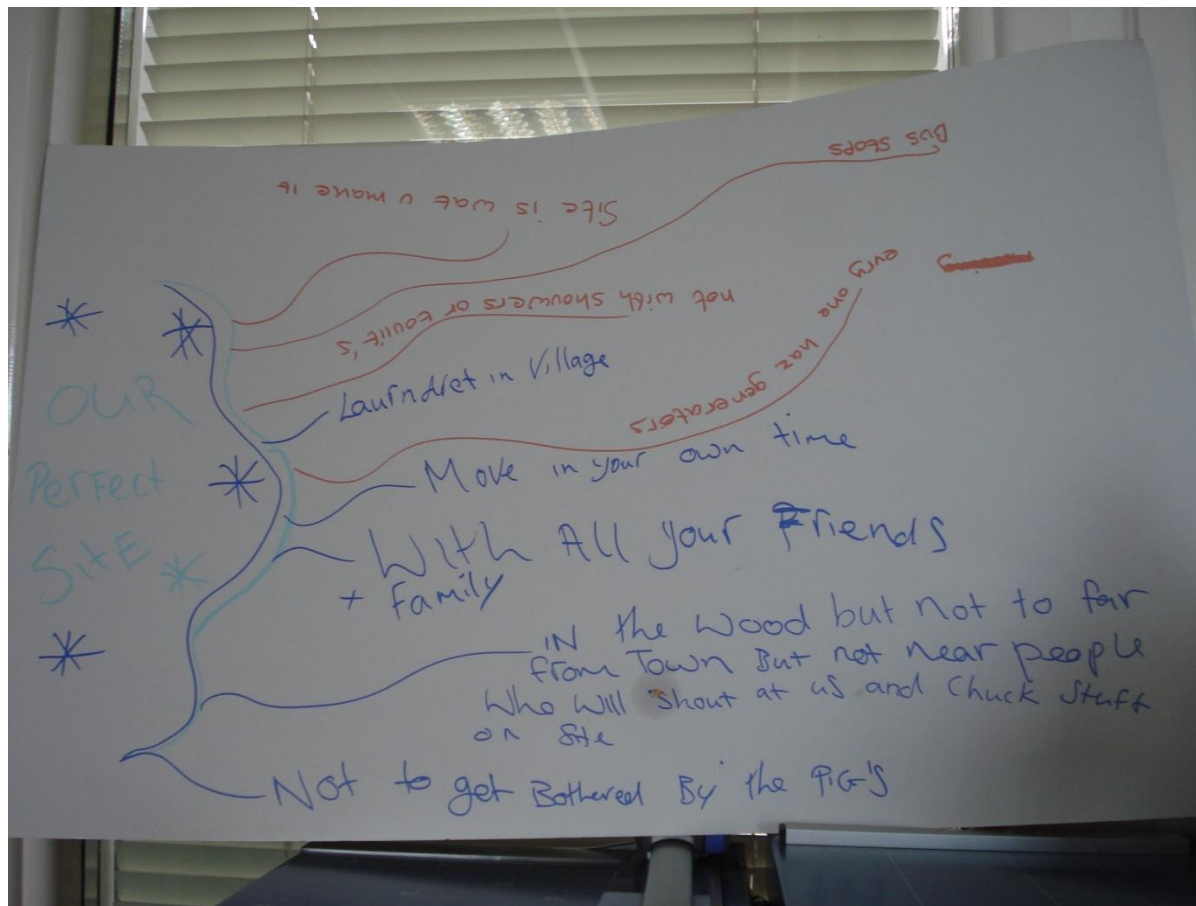 OUR
PERFECT
SITE
Bus stops
Site is wat u make it
not with showers or toulit's
evry one haz generators
Laurndret in Village
Move in your own time
With All your Friends
+ family
IN the Wood but not to far
from Town But not near people
Who Will Shout at us and Chuck Stuff
on Site
Not to get Bothered By the PIG'S